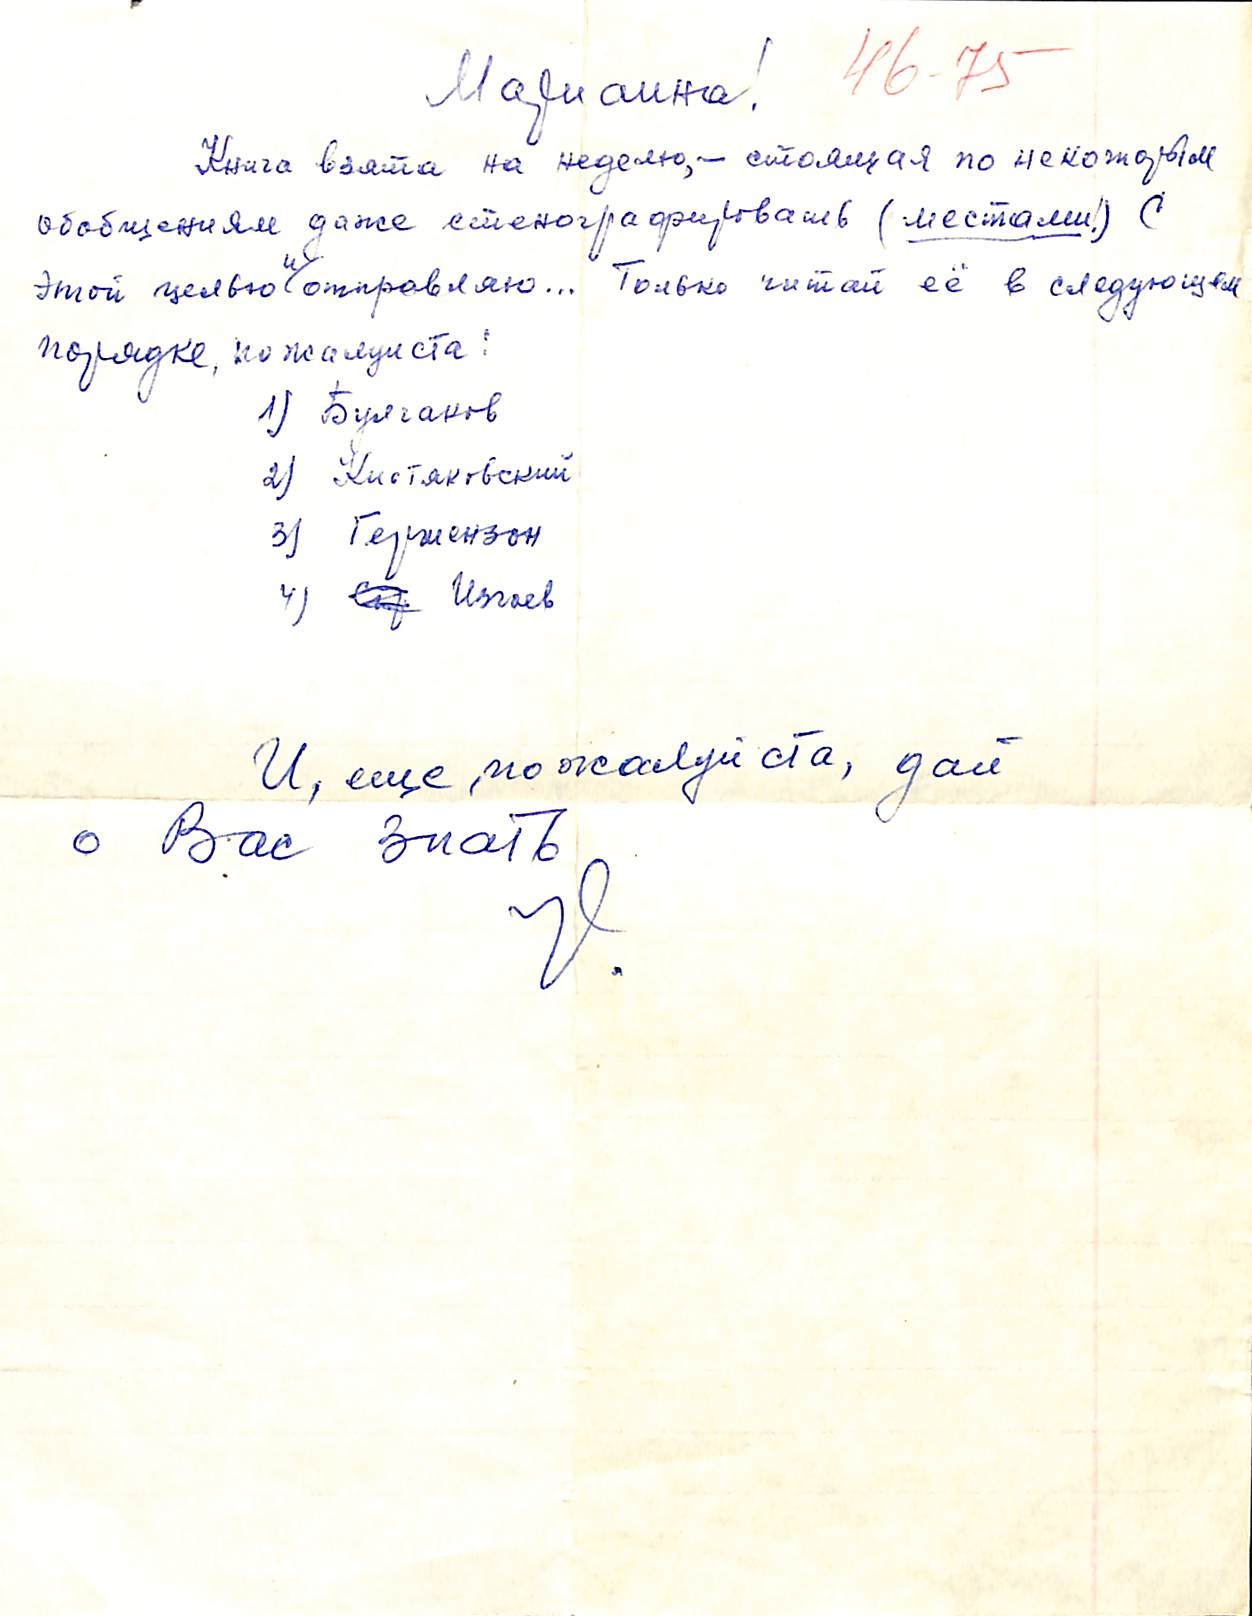 Марианна! 46-75
Книга взята на неделю,– стоящая по некоторым
обобщениям даже стенографировать (местами!) С
этой целью и отправляю... Только читай её в следующем
порядке, пожалуйста:
1) Булгаков
2) Кистяковский
3) Гершензон
4) Изгоев
И, еще, пожалуйста, дай
о Вас знать